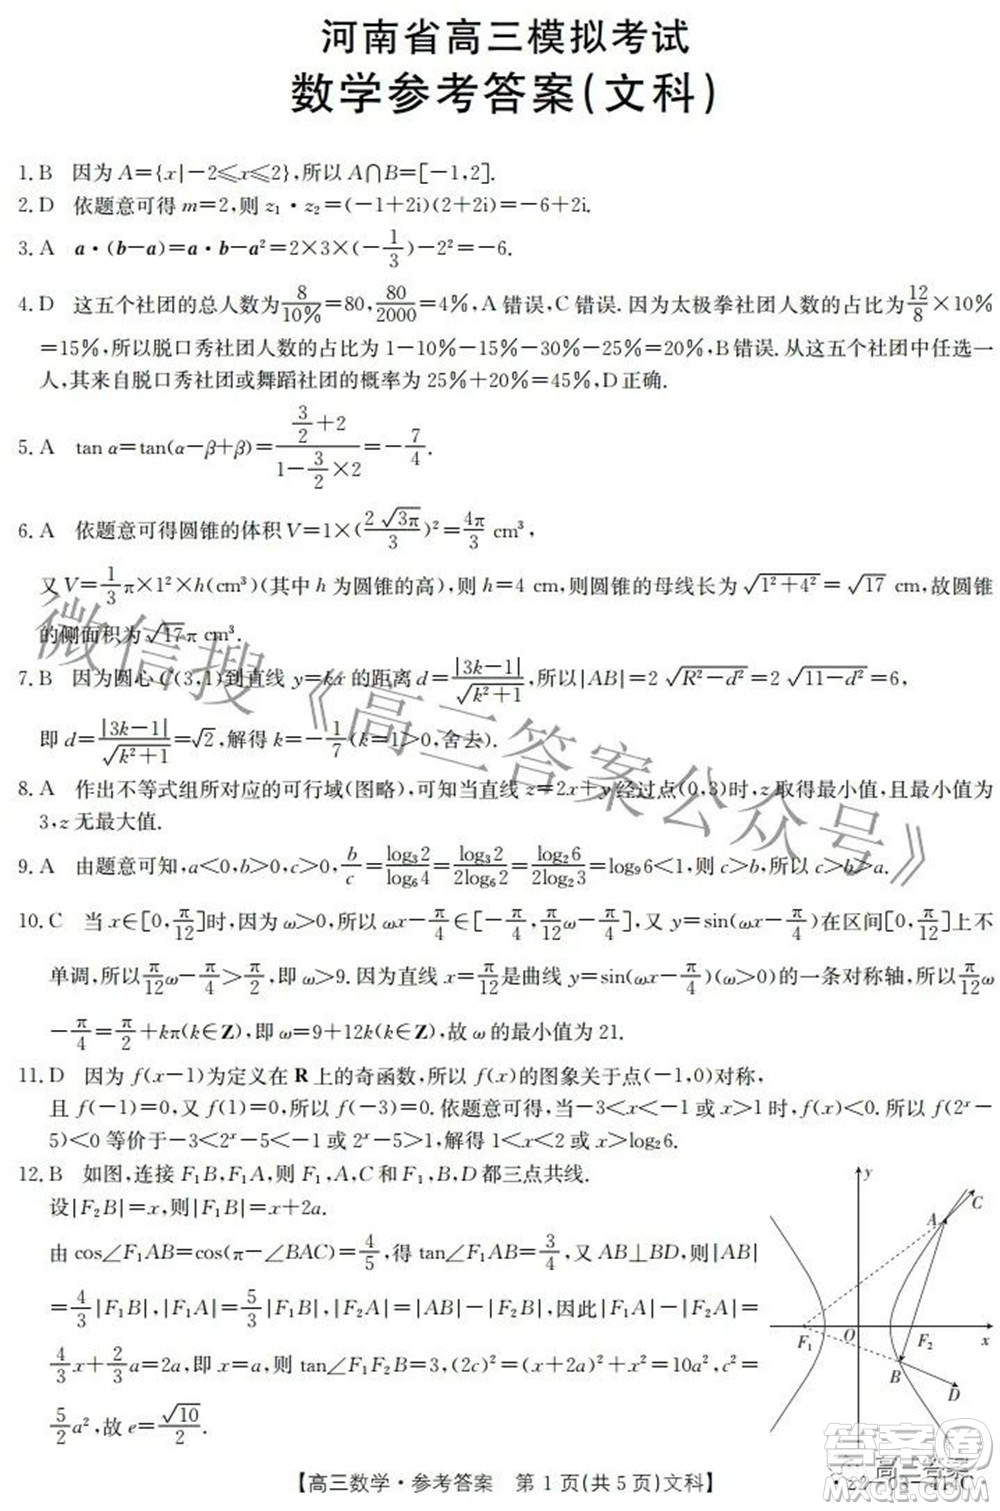 河南省高三模拟考试
数学参考答案(文科)
1. B 因为 A={x|-2⩽x⩽2},所以 A∩B=[-1,2].
2. D 依题意可得 m=2,则 z₁·z₂=(-1+2i)(2+2i)=-6+2i.
3. A a·(b-a)=a·b-a²=2×3×(-1/3)-2²=-6.
4. D 这五个社团的总人数为 8/10%=80, 80/2000=4%,A 错误,C 错误. 因为太极拳社团人数的占比为 12/8×10%
=15%,所以脱口秀社团人数的占比为 1-10%-15%-30%-25%=20%,B 错误. 从这五个社团中任选一
人,其来自脱口秀社团或舞蹈社团的概率为 25%+20%=45%,D 正确.
5. A tan α=tan(α-β+β)=(3/2+2)/(1-3/2×2)=-7/4.
6. A 依题意可得圆锥的体积 V=1×(2√3π/3)²=4π/3 cm³,
又 V=1/3π×1²×h(cm³)(其中 h 为圆锥的高),则 h=4 cm,则圆锥的母线长为 √(1²+4²)=√17 cm,故圆锥
的侧面积为 √17π cm³.
7. B 因为圆心 C(3,1)到直线 y=kx 的距离 d=|3k-1|/√(k²+1),所以|AB|=2√(R²-d²)=2√(11-d²)=6,
即 d=|3k-1|/√(k²+1)=√2,解得 k=-1/7(k=1>0,舍去).
8. A 作出不等式组所对应的可行域(图略),当直线 z=2x+y 经过点(0,3)时,z 取得最小值,且最小值为
3,z 无最大值.
9. A 由题意可知,a<0,b>0,b/c=log₃2/log₆4=log₃2/2log₆2=log₂6/2log₂3=log₉6<1,则 c>b,所以 c>b>a.
10. C 当 x∈[0,π/12]时,因为 ω>0,所以 ωx-π/4∈[-π/4,π/12ω-π/4],又 y=sin(ωx-π/4)在区间[0,π/12]上不
单调,所以π/12ω-π/4>π/2,即 ω>9. 因为直线 x=π/12是曲线 y=sin(ωx-π/4)(ω>0)的一条对称轴,所以π/12ω
-π/4=π/2+kπ(k∈Z),即 ω=9+12k(k∈Z),故 ω 的最小值为 21.
11. D 因为 f(x-1)为定义在 R 上的奇函数,所以 f(x)的图象关于点(-1,0)对称,
且 f(-1)=0,又 f(1)=0,所以 f(-3)=0. 依题意可得,当-3<x<-1 或 x>1 时,f(x)<0. 所以 f(2ˣ-
5)<0 等价于-3<2ˣ-5<-1 或 2ˣ-5>1,解得 1<x<2 或 x>log₂6.
12. B 如图,连接 F₁B,F₁A,则 F₁,A,C 和 F₁,B,D 都三点共线.
设|F₂B|=x,则|F₁B|=x+2a.
由 cos∠F₁AB=cos(π-∠BAC)=4/5,得 tan∠F₁AB=3/4,又 AB⊥BD,则|AB|
=4/3|F₁B|,|F₁A|=5/3|F₁B|,|F₂A|=|AB|-|F₂B|,因此|F₁A|-|F₂A|=
4/3x+2/3a=2a,即 x=a,所以 tan∠F₁F₂B=3,(2c)²=(x+2a)²+x²=10a²,c²=
5/2a²,故 e=√10/2.
y
C
A
F₁
O
F₂
x
B
D
微信搜《高三答案公众号》
【高三数学·参考答案 第 1 页(共 5 页)文科】
高三答案